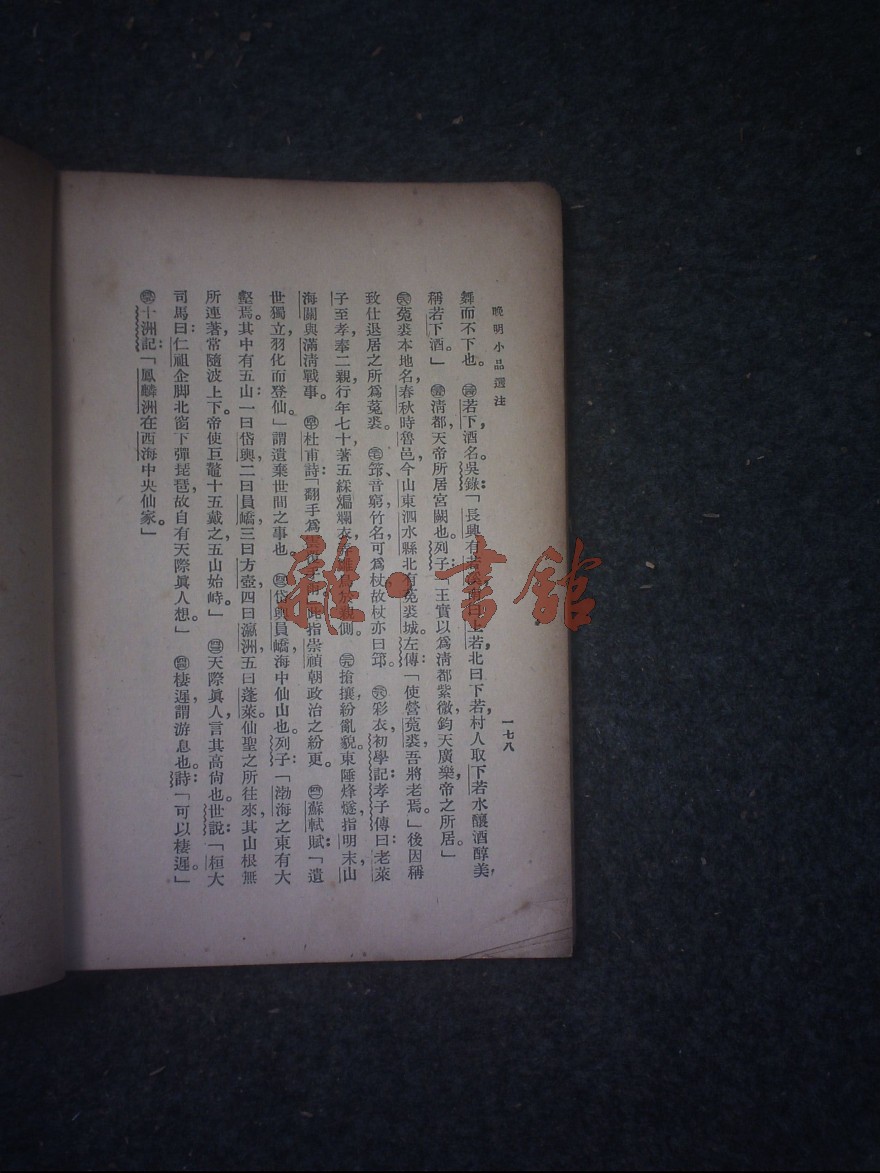 晚明小品選注
一七八
舞而不下也。若下,酒名。吳錄:「長興有若北曰下若,村人取下若水釀酒醇美,
稱若下酒。」清都,天帝所居宮闕也。列子:「王實以爲清都紫微,鈞天廣樂,帝之所居。」
菟裘本地名,春秋時魯邑,今山東泗水縣北有菟裘城。左傳:「使營菟裘,吾將老焉。」後因稱
致仕退居之所爲菟裘。筇,音窮,竹名,可爲杖,故杖亦曰筇。彩衣,初學記孝子傳曰:老萊
子至孝,奉二親,行年七十,著五綵斒斕衣,側。搶攘,紛亂貌。東陲烽燧,指明末山
海關與滿清戰事。杜甫詩:「翻手爲此指崇禎朝政治之紛更。蘇軾賦:「遺
世獨立,羽化而登仙。」謂遺棄世間之事也。岱輿員嶠,海中仙山也。列子:「渤海之東有大
壑焉。其中有五山,一曰岱輿,二曰員嶠,三曰方壺,四曰瀛洲,五曰蓬萊。仙聖之所往來,其山根無
所連著,常隨波上下。帝使巨鼇十五戴之,五山始峙。」天際眞人,言其高尙也。世說:「桓大
司馬曰:仁祖企脚北窗下彈琵琶,故自有天際眞人想。」棲遲,謂游息也。詩:「可以棲遲。」
十洲記:「鳳麟洲在西海中央,仙家。」
雜·書館